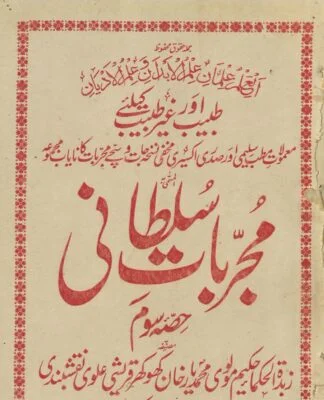 جملہ حقوق محفوظ
العلم علمان علم الابدان و علم الادیان
طبیب اور غیر طبیب کیلئے
معمولات مطب سلیمی اور صدری اکسیری مخفی نسخہ جات و سچے مجربات کا نایاب مجموعہ
مجربات سلطانی
حصہ سوم
زبدۃ الحکما حکیم مولوی محمد یار خان کھوکھر قریشی علوی نقشبندی